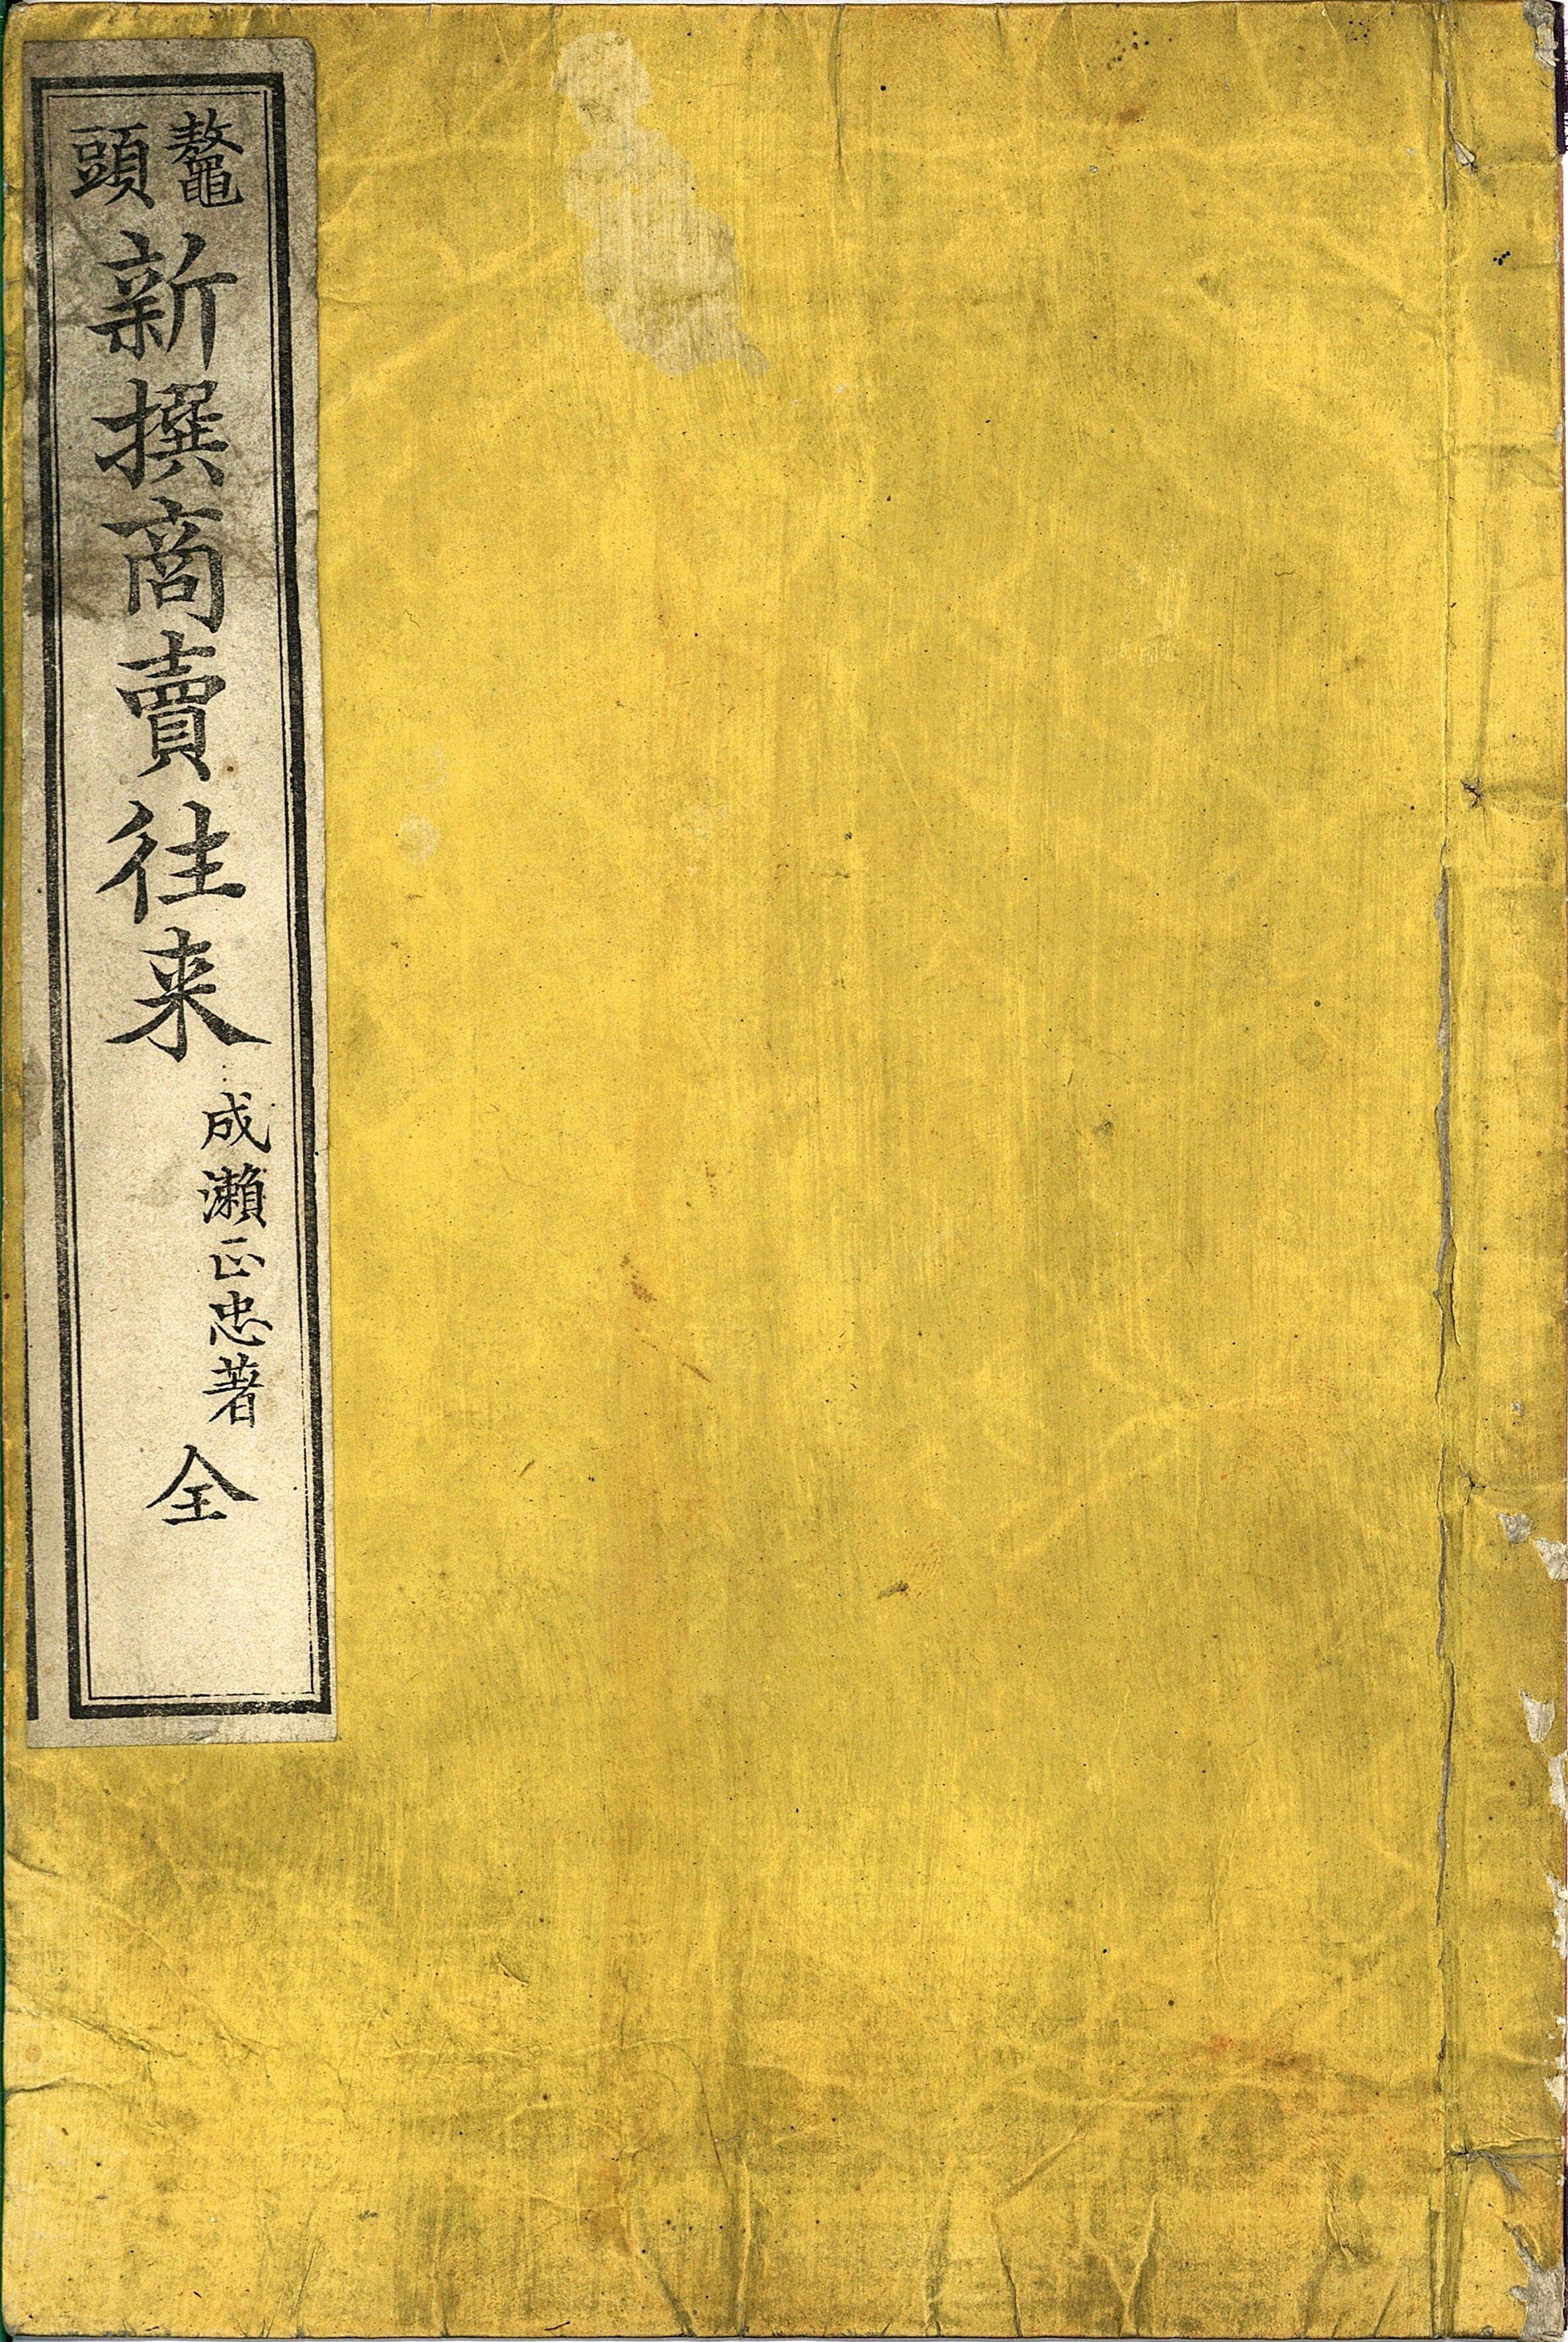 鼇頭
新撰商賣往来
成瀬正忠著
全